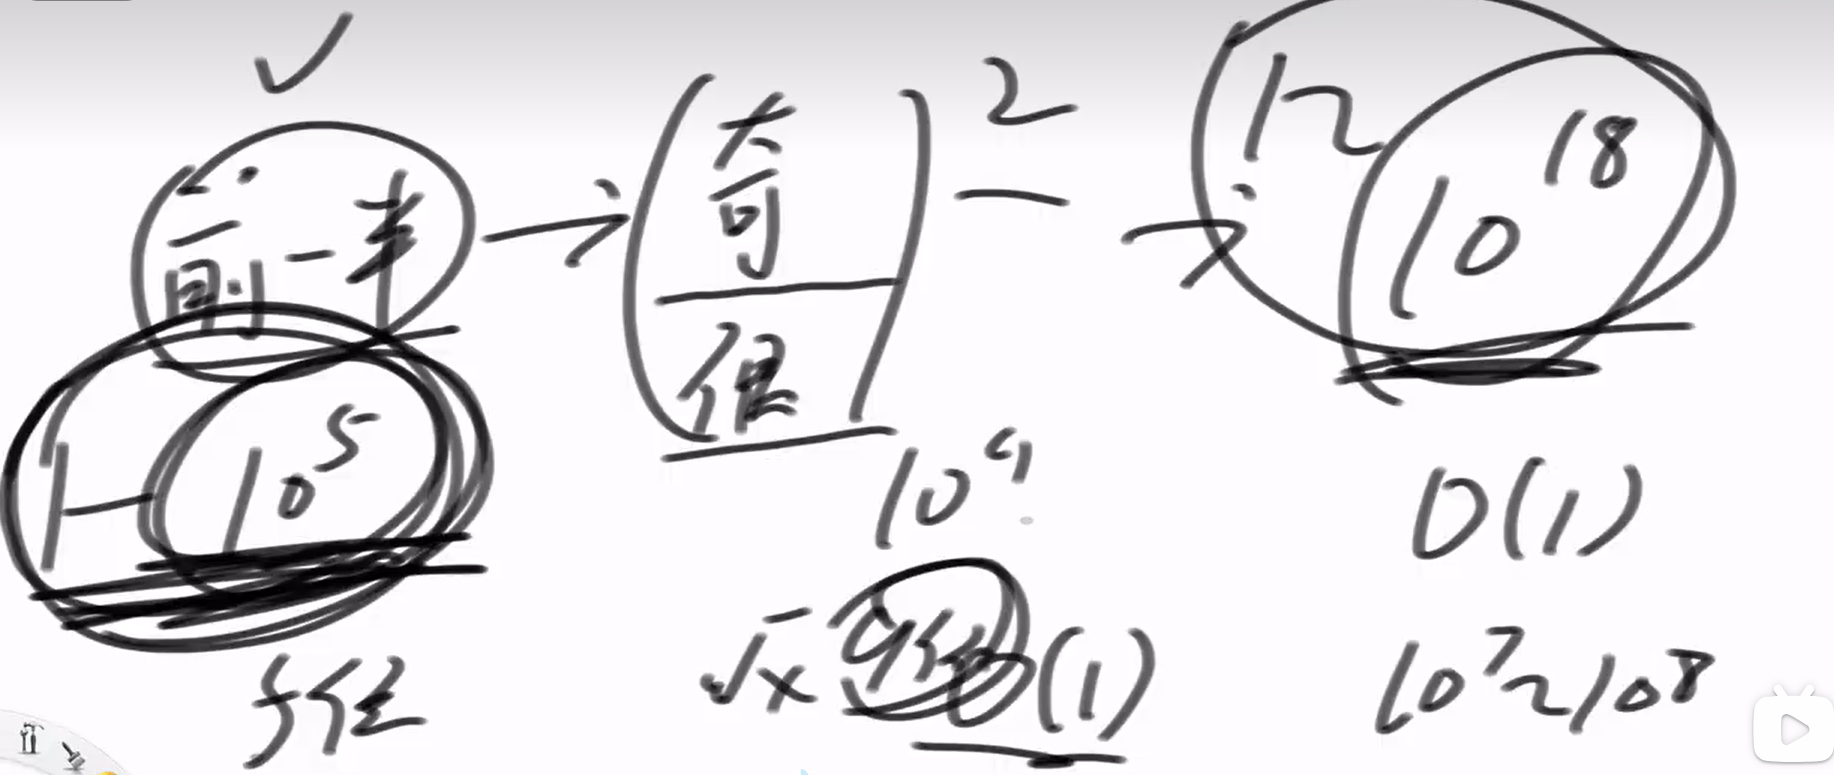 前一半 → (奇
很)² → 1~10¹⁸
1-10⁵
10⁹
O(1)
√x
O(1)
10⁷~10⁸